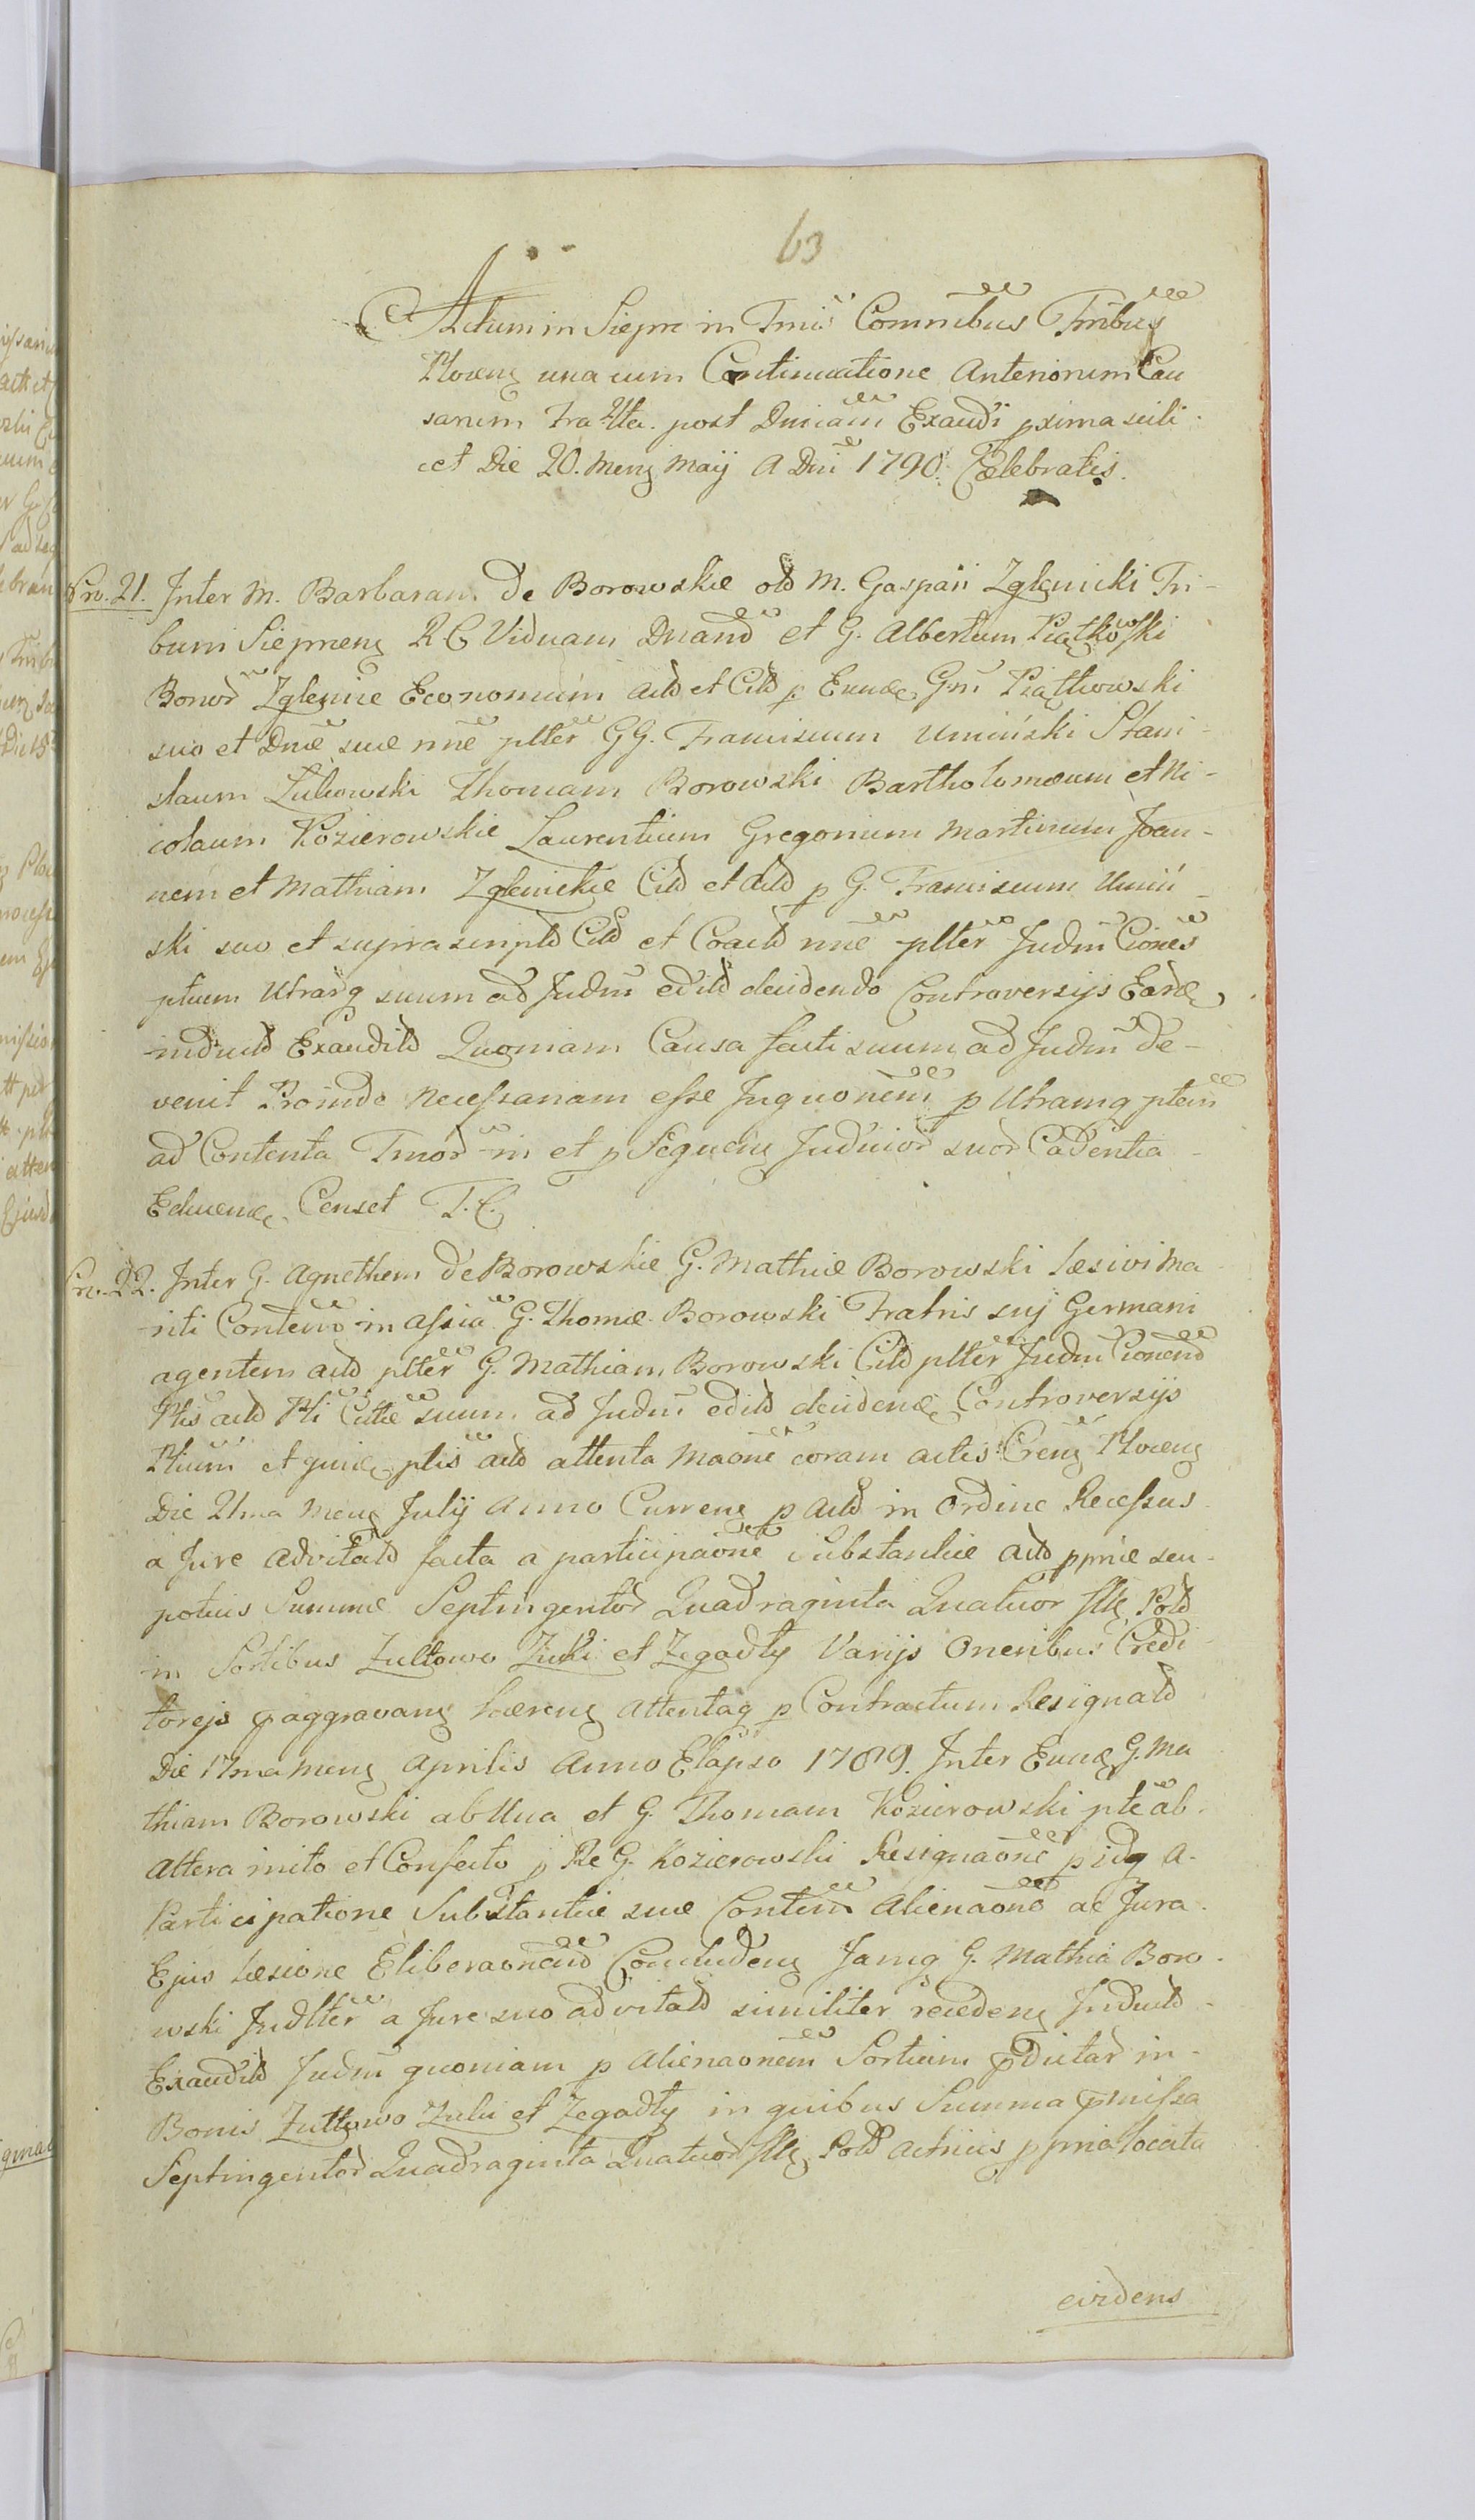 63
Actum in Sieprc in Tmis Comnibus Tmbus
Plocenς una cum Continuatione Anteriorum Cau
sarum Fra 5ta. post Dnicam Exaudi pxima scili
cet Die 20. Menς Maij A Dni 1790. Cælebratis.
Prw. 21. Inter M. Barbaram de Borowskie old M. Gaspari Zglenicki Tri-
buni Siepmenς R C Viduam Dnand et G. Albertum Piątkowski
Bonor Zglenice Economum actd et Citd p Eund Gm Piątkowski
suo et Dnæ suæ nne pltter GG. Franciscum Umiński Stani-
slaum Zukowski Thomam Borowski Bartholomæum et Ni-
colaum Kozierowskie Laurentium Gregorium Martinum Joan-
nem et Mathiam Zglenickie Citd et Actd p G. Franciscum Umiń-
ski suo et suprascriptd Citd et Coactd nne pltter Judm Ciones
ptium Utrarq suum ad Judm editd decidendo Controversijs Eard
induttd Exauditd Quoniam Causa facti suum ad Judm de-
venit Proinde necessariam esse Inqnonem p Utramq ptem
ad Contenta Tmor in et p Sequenς Judicior suor Cadentia
Educend Censet T. C.
Prw. 22. Inter G. Agnethem de Borowskie G. Mathiæ Borowski læsivi Ma-
riti Contem in assia G. Thomæ Borowski Fratris suj Germani
agentem actd pltter G. Mathiam Borowski Citd pltter Judm Cionend
Ptis actd Pti Cittæ suum ad Judm editd decidend Controversijs
Ptium et quid ptis actd attenta Maone coram actis Crenς Plocenς
Die 21ma Menς Julij Anno Currenς p Actd in Ordine Recessus
a Jure advitatd facta a participaone Substantiæ actd ppriæ seu
potius Summæ Septingentor Quadraginta Quatuor fllς Pold
in Sortibus Zultowo Zuki et Zegadły Varijs Oneribus Credi
torejs p aggravanς hærenς attentaq p Contractum Resignatd
Die 17ma Menς Aprilis Anno Elapso 1789. Inter Eund G. Ma
thiam Borowski ab Una et G. Thomam Kozierowski pte ab
Altera inito et Confecto p Re G. Kozierowski Resignaone pidq a
Participatione Substantiæ suæ Contem Alienaone ac Jura
Ejus læsione Eliberaonend Concludenς Jamq G. Mathia Boro-
wski Judltter a Jure suo advitatd similiter recedenς Inductd
Exauditd Judm quoniam p Alienaonem Sortium pdictar in
Bonis Zultowo Zuki et Zegadły in quibus Summa pmissa
Septingentor Quadraginta Quatuor fllς Pold Actricis ppria locata
evidens